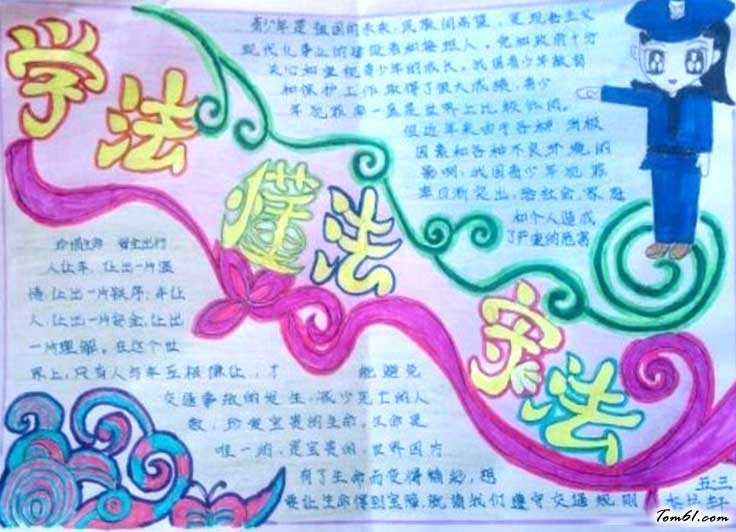 学法
懂法
守法
青少年是祖国的未来,民族的希望,是现社主义
现代化事业的建设者和接班人。党和政府十分
关心和重视青少年的成长。我国青少年教育
和保护工作取得了很大成绩,青少
年犯罪率一直是世界上比较低的。
但近年来由于各种消极
因素和各种不良环境的
影响,我国青少年犯罪
率日渐突出,给社会、家庭
和个人造成
了严重的危害
珍惜生命 安全出行
人让车,让出一片温
情;让出一片秩序;车让
人,让出一片安全,让出
一片理解。在这个世
界上,只有人与车互相谦让,才能避免
交通事故的发生,减少死亡的人
数,珍爱宝贵的生命。生命是
唯一的,是宝贵的,世界因为
有了生命而变得精彩,想
要让生命得到宝障,就请我们遵守交通规则
五.三
Tom61.com